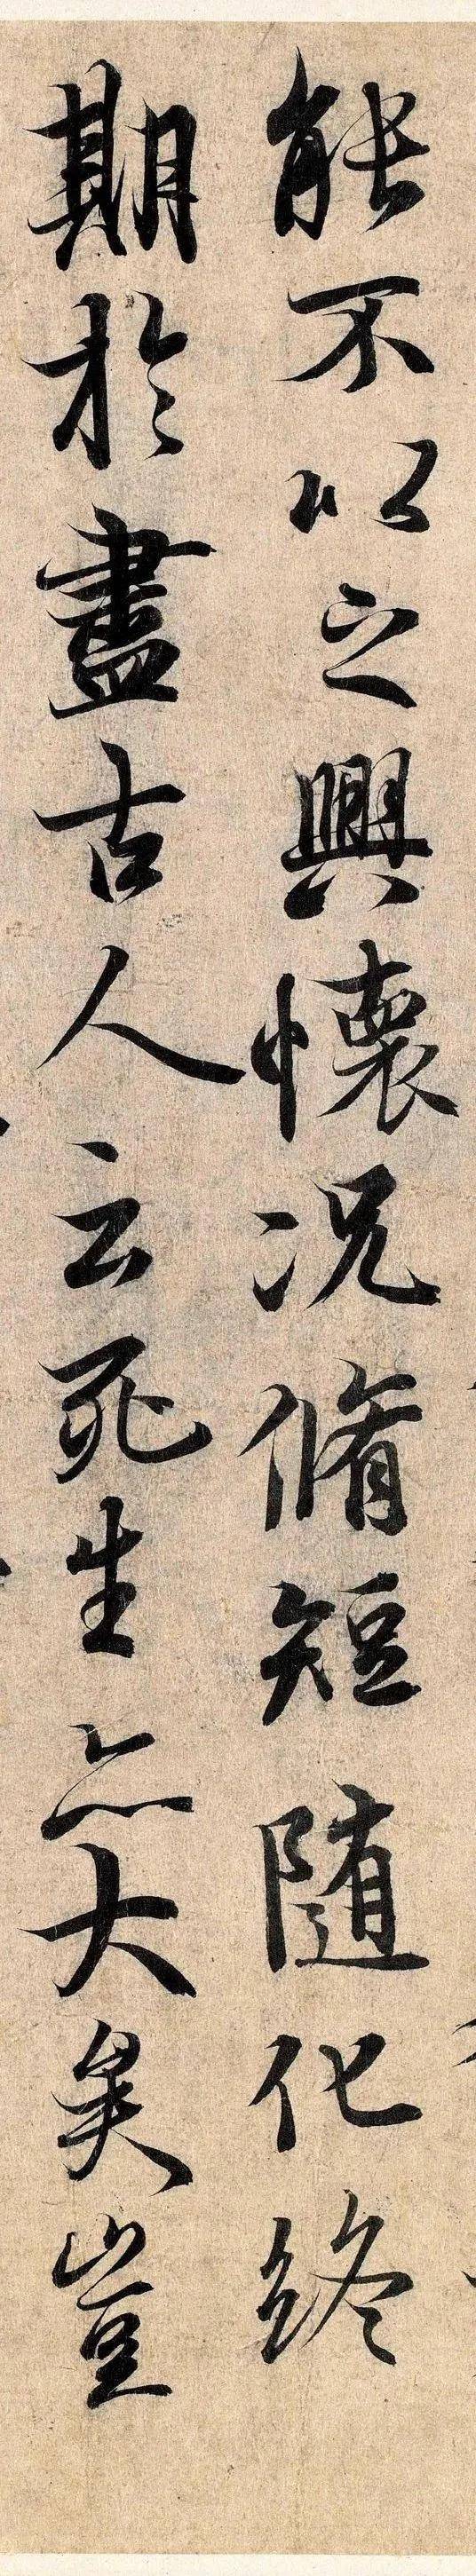 能不以之興懷况脩短隨化終
期於盡古人云死生亦大矣豈